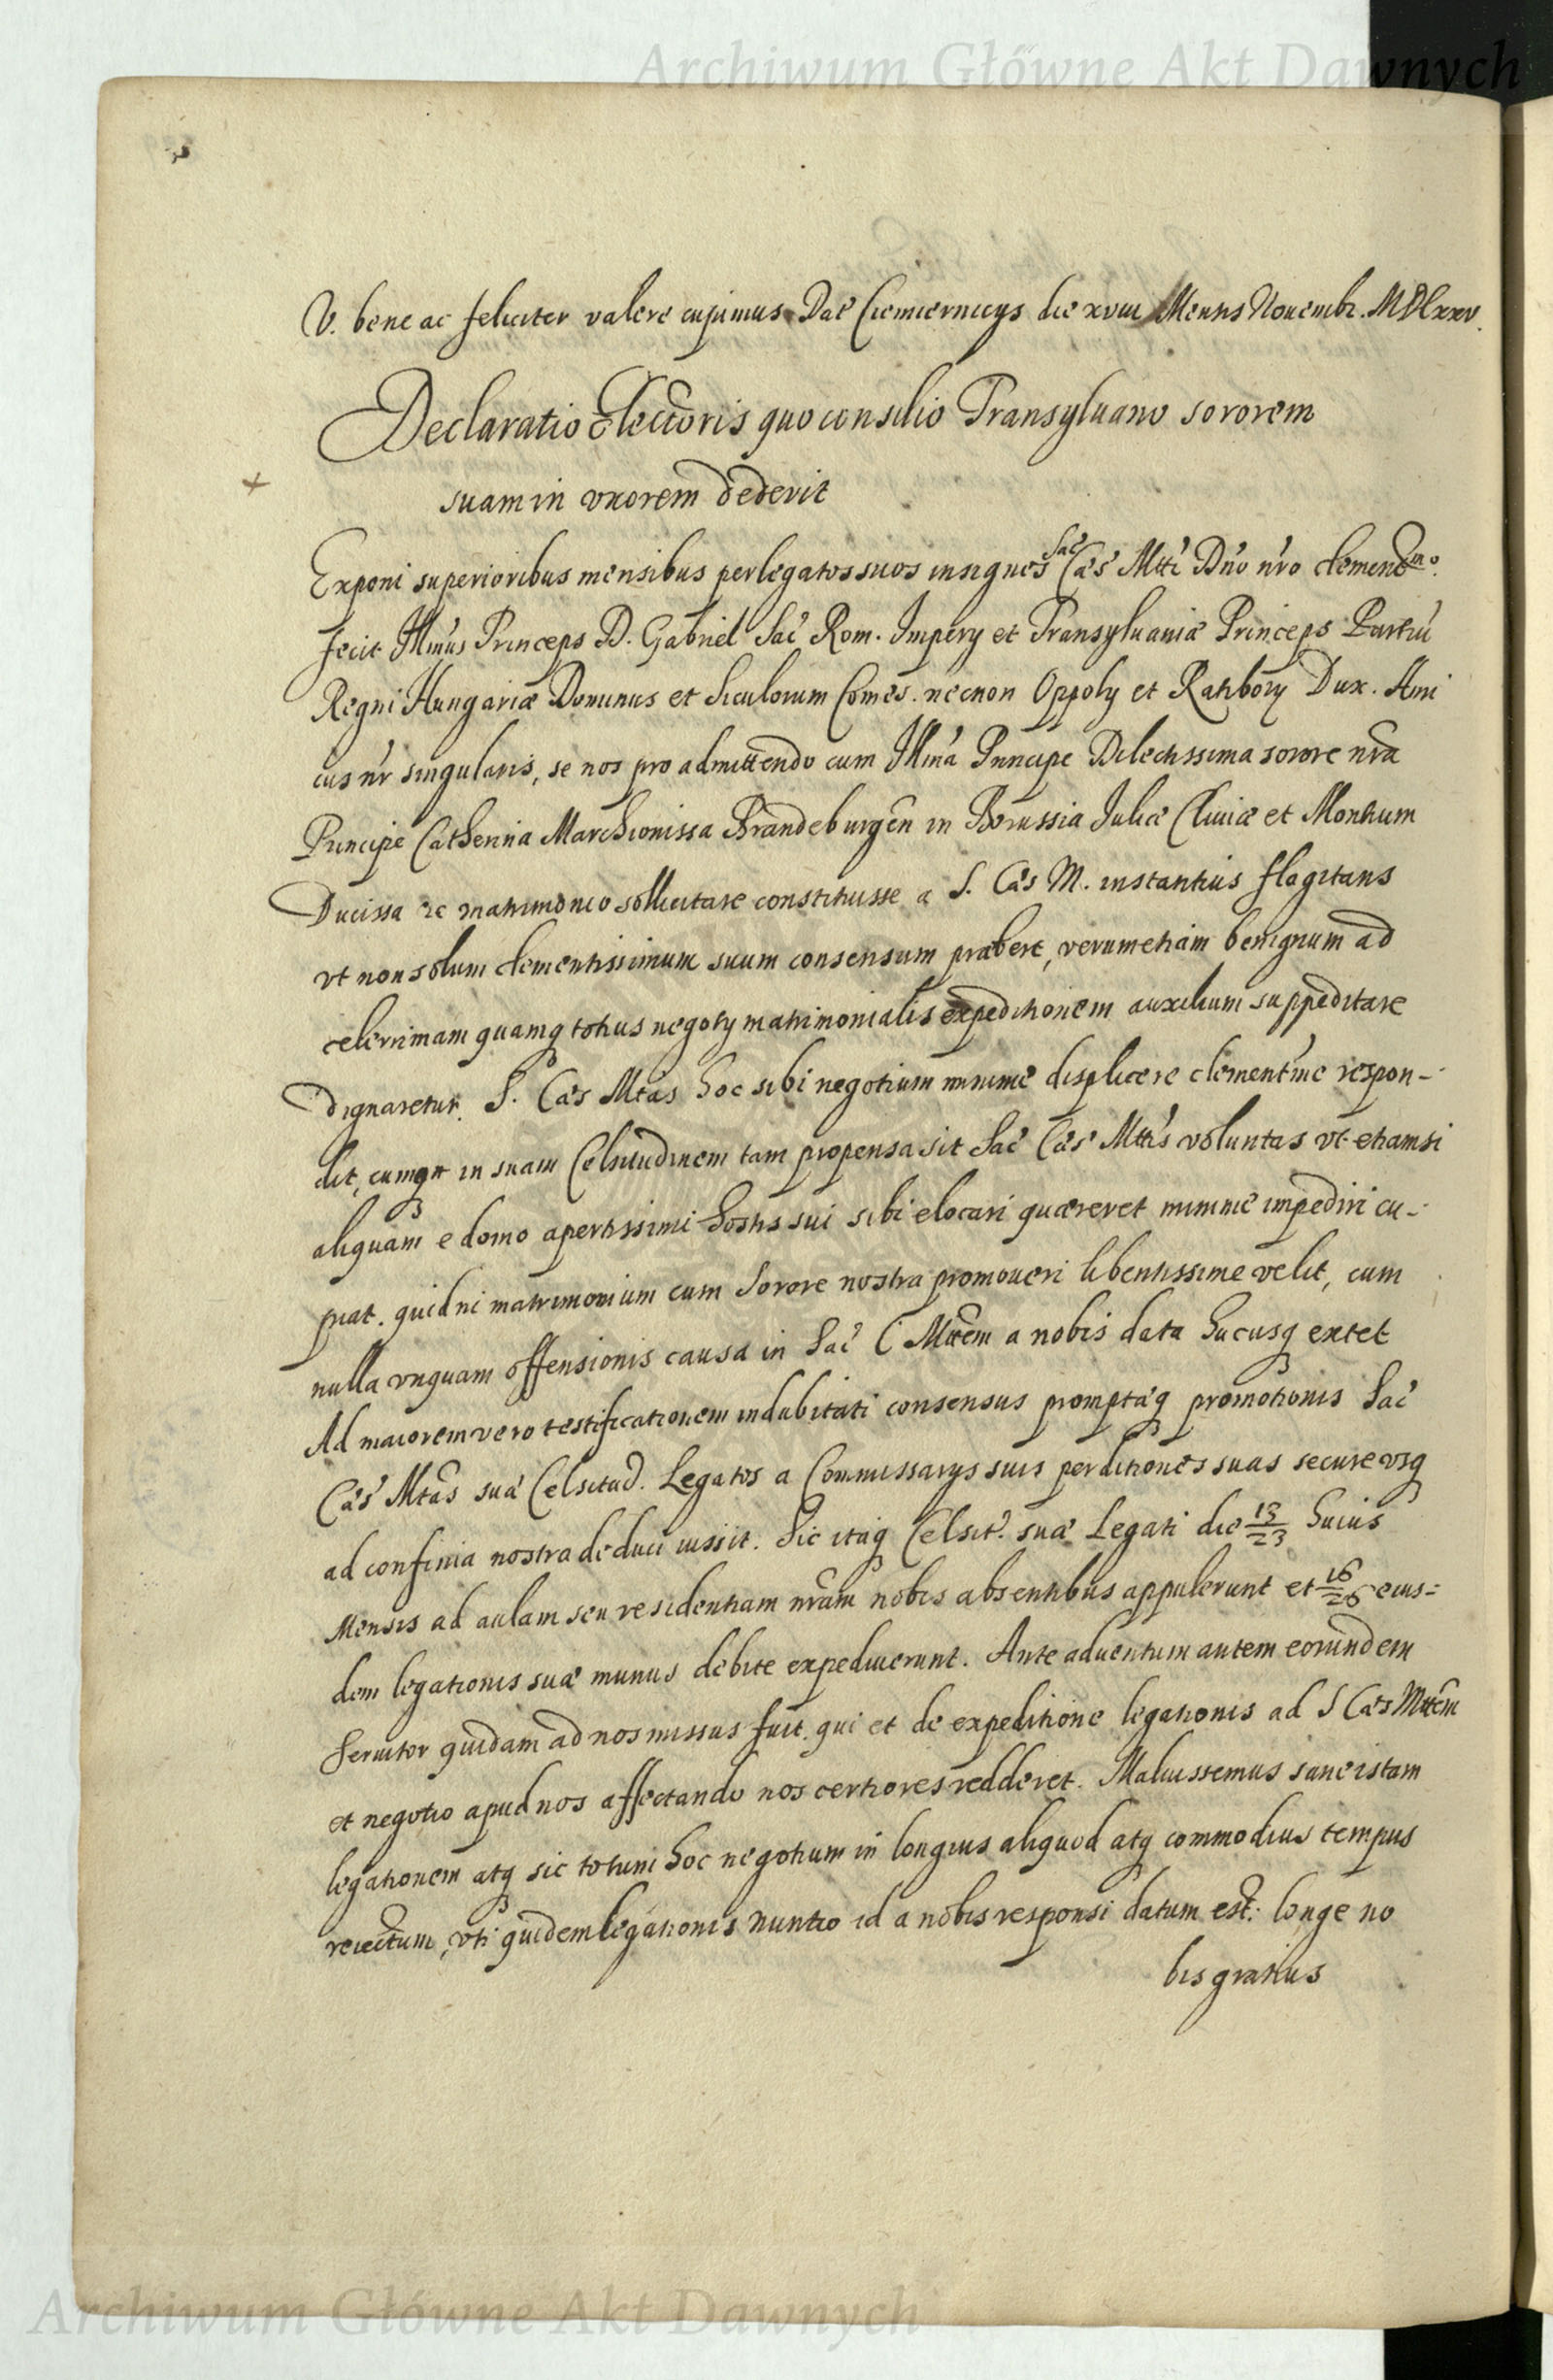 Archiwum Główne Akt Dawnych
V. bene ac feliciter valere cupimus. Dat Ciemiernicys die xviii Mensis Nouembr. MDCxxv.
Declaratio Electoris quo consilio Transyluano sororem
suam in vxorem dederit
Exponi superioribus mensibus per legatos suos insignes Sac Caes Mtti Dno nro clementmo.
fecit Illmus Princeps D. Gabriel Sac Rom. Impery et Transyluaniæ Princeps Partiu
Regni Hungariæ Dominus et Siculorum Comes. necnon Oppoly et Ratibory Dux. Ami
cus nr singularis, se nos pro admittendo cum Illma Principe Dilectissima sorore nra
Principe Catherina Marchionissa Brandeburgen in Borussia Juliæ Cliuiæ et Montium
Ducissa re matrimonio sollicitare constituisse a S. Caes M. instantius flagitans
vt non solum clementissimum suum consensum præbere, verumetiam benignum ad
celerrimam quamq totius negoty matrimonialis expeditionem auxilium suppeditare
dignaretur. S. Caes Mtas hoc sibi negotium minime displicere clementme respon-
dit, cumq in suam Celsitudinem tam propensa sit Sac Caes Mttis voluntas vt etiamsi
aliquam e domo apertissimi hostis sui sibi elocari quæreret minime impediri cu-
piat. quidni matrimonium cum Sorore nostra promoueri libentissime velit, cum
nulla vnquam offensionis causa in Sac C Mttem a nobis data hucusq extet
Ad maiorem vero testificationem indubitati consensus promptæq promotionis Sac
Caes Mtas suæ Celsitud. Legatos a Commissarys suis per ditiones suas secure vsq
ad confinia nostra deduci iussit. Sic itaq Celsit. suæ Legati die 13/23 huius
Mensis ad aulam seu residentiam nram nobis absentibus appulerunt et 16/26 eius=
dem legationis suæ munus debite expediuerunt. Ante aduentum autem eorundem
Seruitor quidam ad nos missus fuit. qui et de expeditione legationis ad S Caes Mttem
et negotio apud nos affectando nos certiores redderet. Maluissemus sane istam
legationem atq sic totum hoc negotium in longius aliquod atq commodius tempus
reiectum, vti quidem legationis nuntio id a nobis responsi datum est: longe no
bis gratius
Archiwum Główne Akt Dawnych